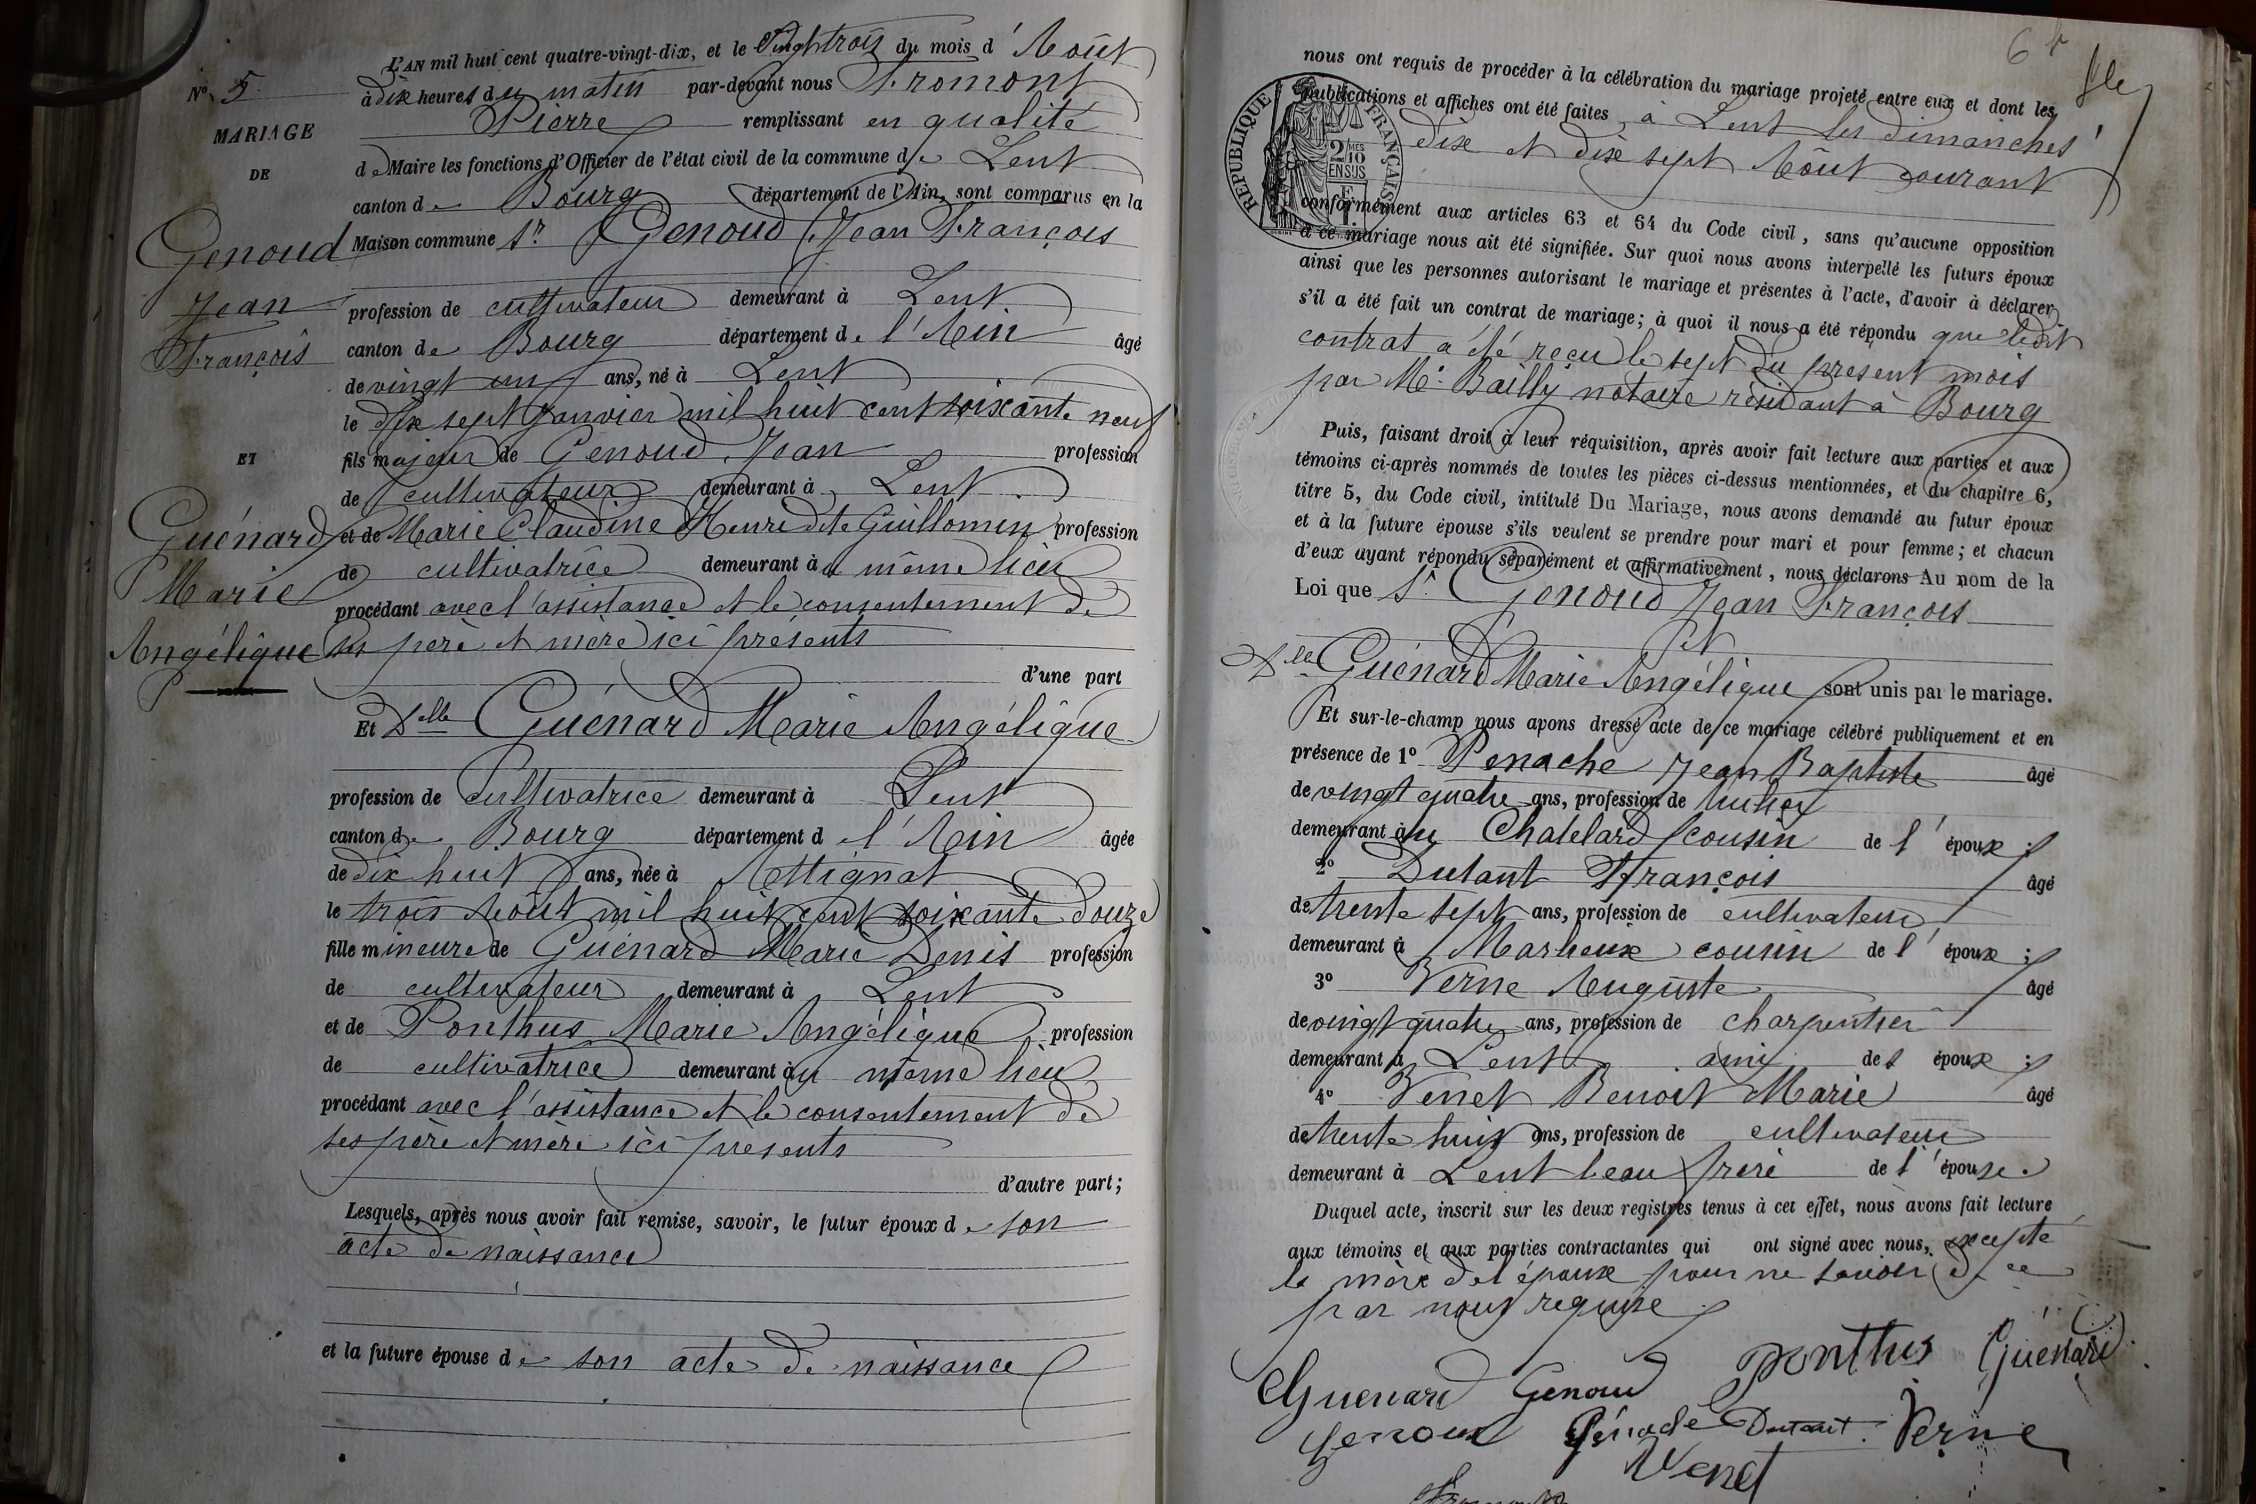 L'AN mil huit cent quatre-vingt-dix, et le vingt trois du mois d'Août
No 5. à dix heures du matin par-devant nous Fromont
MARIAGE
Pierre remplissant en qualité
DE
de Maire les fonctions d'Officier de l'état civil de la commune de Lent
canton de Bourg département de l'Ain, sont comparus en la
Genoud
Jean
François
Maison commune Sr Genoud Jean François
profession de cultivateur demeurant à Lent
canton de Bourg département de l'Ain âgé
de vingt un ans, né à Lent
le dix sept Janvier mil huit cent soixante neuf
ET
fils majeur de Genoud Jean profession
de cultivateur demeurant à Lent
Guénard
Marie
Angélique
et de Marie Claudine Henre dite Guillomin profession
de cultivatrice demeurant au même lieu
procédant avec l'assistance et le consentement de
ses père et mère ici présents
d'une part
Et Delle Guénard Marie Angélique
profession de cultivatrice demeurant à Lent
canton de Bourg département de l'Ain âgée
de dix huit ans, née à Attignat
le trois Août mil huit cent soixante douze
fille mineure de Guénard Marie Denis profession
de cultivateur demeurant à Lent
et de Ponthus Marie Angélique profession
de cultivatrice demeurant au même lieu
procédant avec l'assistance et le consentement de
ses père et mère ici présents
d'autre part;
Lesquels, après nous avoir fait remise, savoir, le futur époux de son
acte de naissance
et la future épouse de son acte de naissance
nous ont requis de procéder à la célébration du mariage projeté entre eux et dont les
publications et affiches ont été faites à Lent les dimanches
dix et dix sept Août courant
REPUBLIQUE FRANÇAISE
2/10
EN SUS
conformément aux articles 63 et 64 du Code civil, sans qu'aucune opposition
à ce mariage nous ait été signifiée. Sur quoi nous avons interpellé les futurs époux
ainsi que les personnes autorisant le mariage et présentes à l'acte, d'avoir à déclarer
s'il a été fait un contrat de mariage; à quoi il nous a été répondu que ledit
contrat a été reçu le sept du présent mois
par Me Bailly notaire résidant à Bourg
Puis, faisant droit à leur réquisition, après avoir fait lecture aux parties et aux
témoins ci-après nommés de toutes les pièces ci-dessus mentionnées, et du chapitre 6,
titre 5, du Code civil, intitulé Du Mariage, nous avons demandé au futur époux
et à la future épouse s'ils veulent se prendre pour mari et pour femme; et chacun
d'eux ayant répondu séparément et affirmativement, nous déclarons Au nom de la
Loi que Sr Genoud Jean François
et
Delle Guénard Marie Angélique sont unis par le mariage.
Et sur-le-champ nous avons dressé acte de ce mariage célébré publiquement et en
présence de 1o Penache Jean Baptiste âgé
de vingt quatre ans, profession de
demeurant au Chatelard cousin de l'époux;
2o Dutant François âgé
de trente sept ans, profession de cultivateur
demeurant à Marlieux cousin de l'époux;
3o Verne Auguste âgé
de vingt quatre ans, profession de charpentier
demeurant à Lent ami des époux;
4o Venet Benoit Marie âgé
de trente huit ans, profession de cultivateur
demeurant à Lent beau frère de l'épouse.
Duquel acte, inscrit sur les deux registres tenus à cet effet, nous avons fait lecture
aux témoins et aux parties contractantes qui ont signé avec nous, excepté
la mère de l'époux pour ne savoir de ce
par nous requise.
Guenard Genoud Ponthus Guénard
Genoud Dutant Verne
Venet